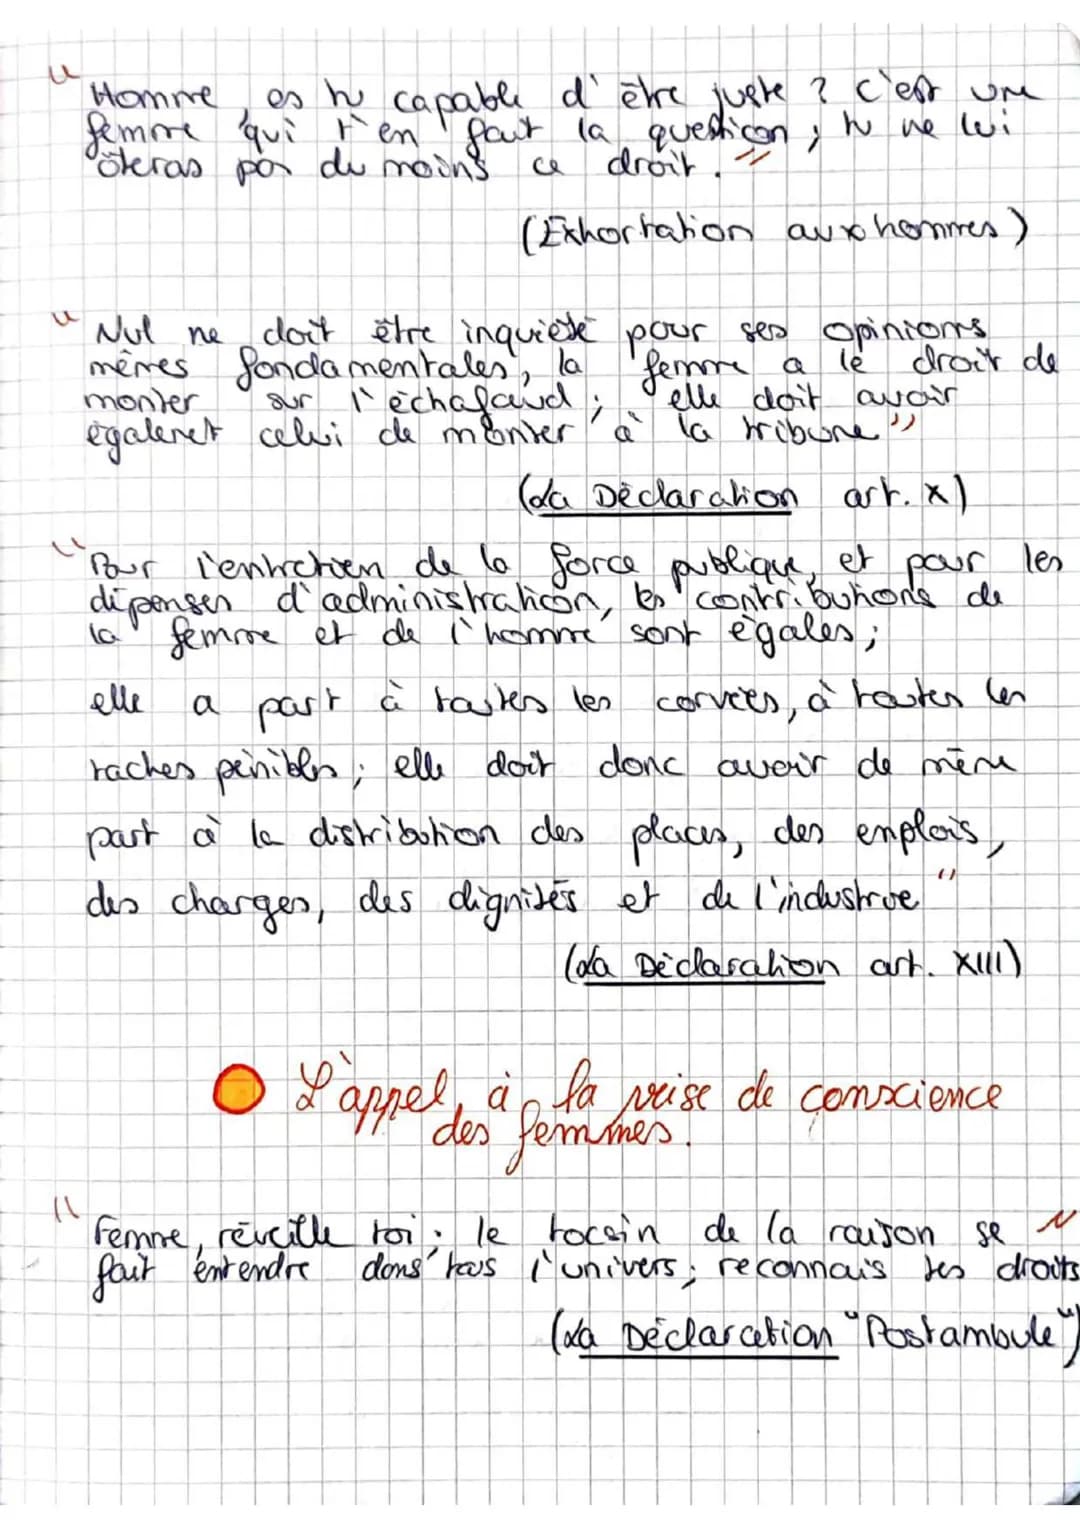 " Homme, es tu capable d'être juste ? C'est une
femme qui t'en fait la question ; tu ne lui
ôteras pas du moins ce droit. "
(Exhortation aux hommes)
" Nul ne doit être inquiété pour ses opinions
mêmes fondamentales, la femme a le droit de
monter sur l'échafaud ; elle doit avoir
également celui de monter à la tribune "
(La Déclaration art. X)
" Pour l'entretien de la force publique, et pour les
dépenses d'administration, les contributions de
la femme et de l'homme sont égales ;
elle a part à toutes les corvées, à toutes les
taches pénibles ; elle doit donc avoir de même
part à la distribution des places, des emplois,
des charges, des dignités et de l'industrie "
(La Déclaration art. XIII)
L'appel à la prise de conscience
des femmes.
" Femme, réveille toi ; le tocsin de la raison se "
fait entendre dans tous l'univers ; reconnais tes droits
(La Déclaration "Postambule")